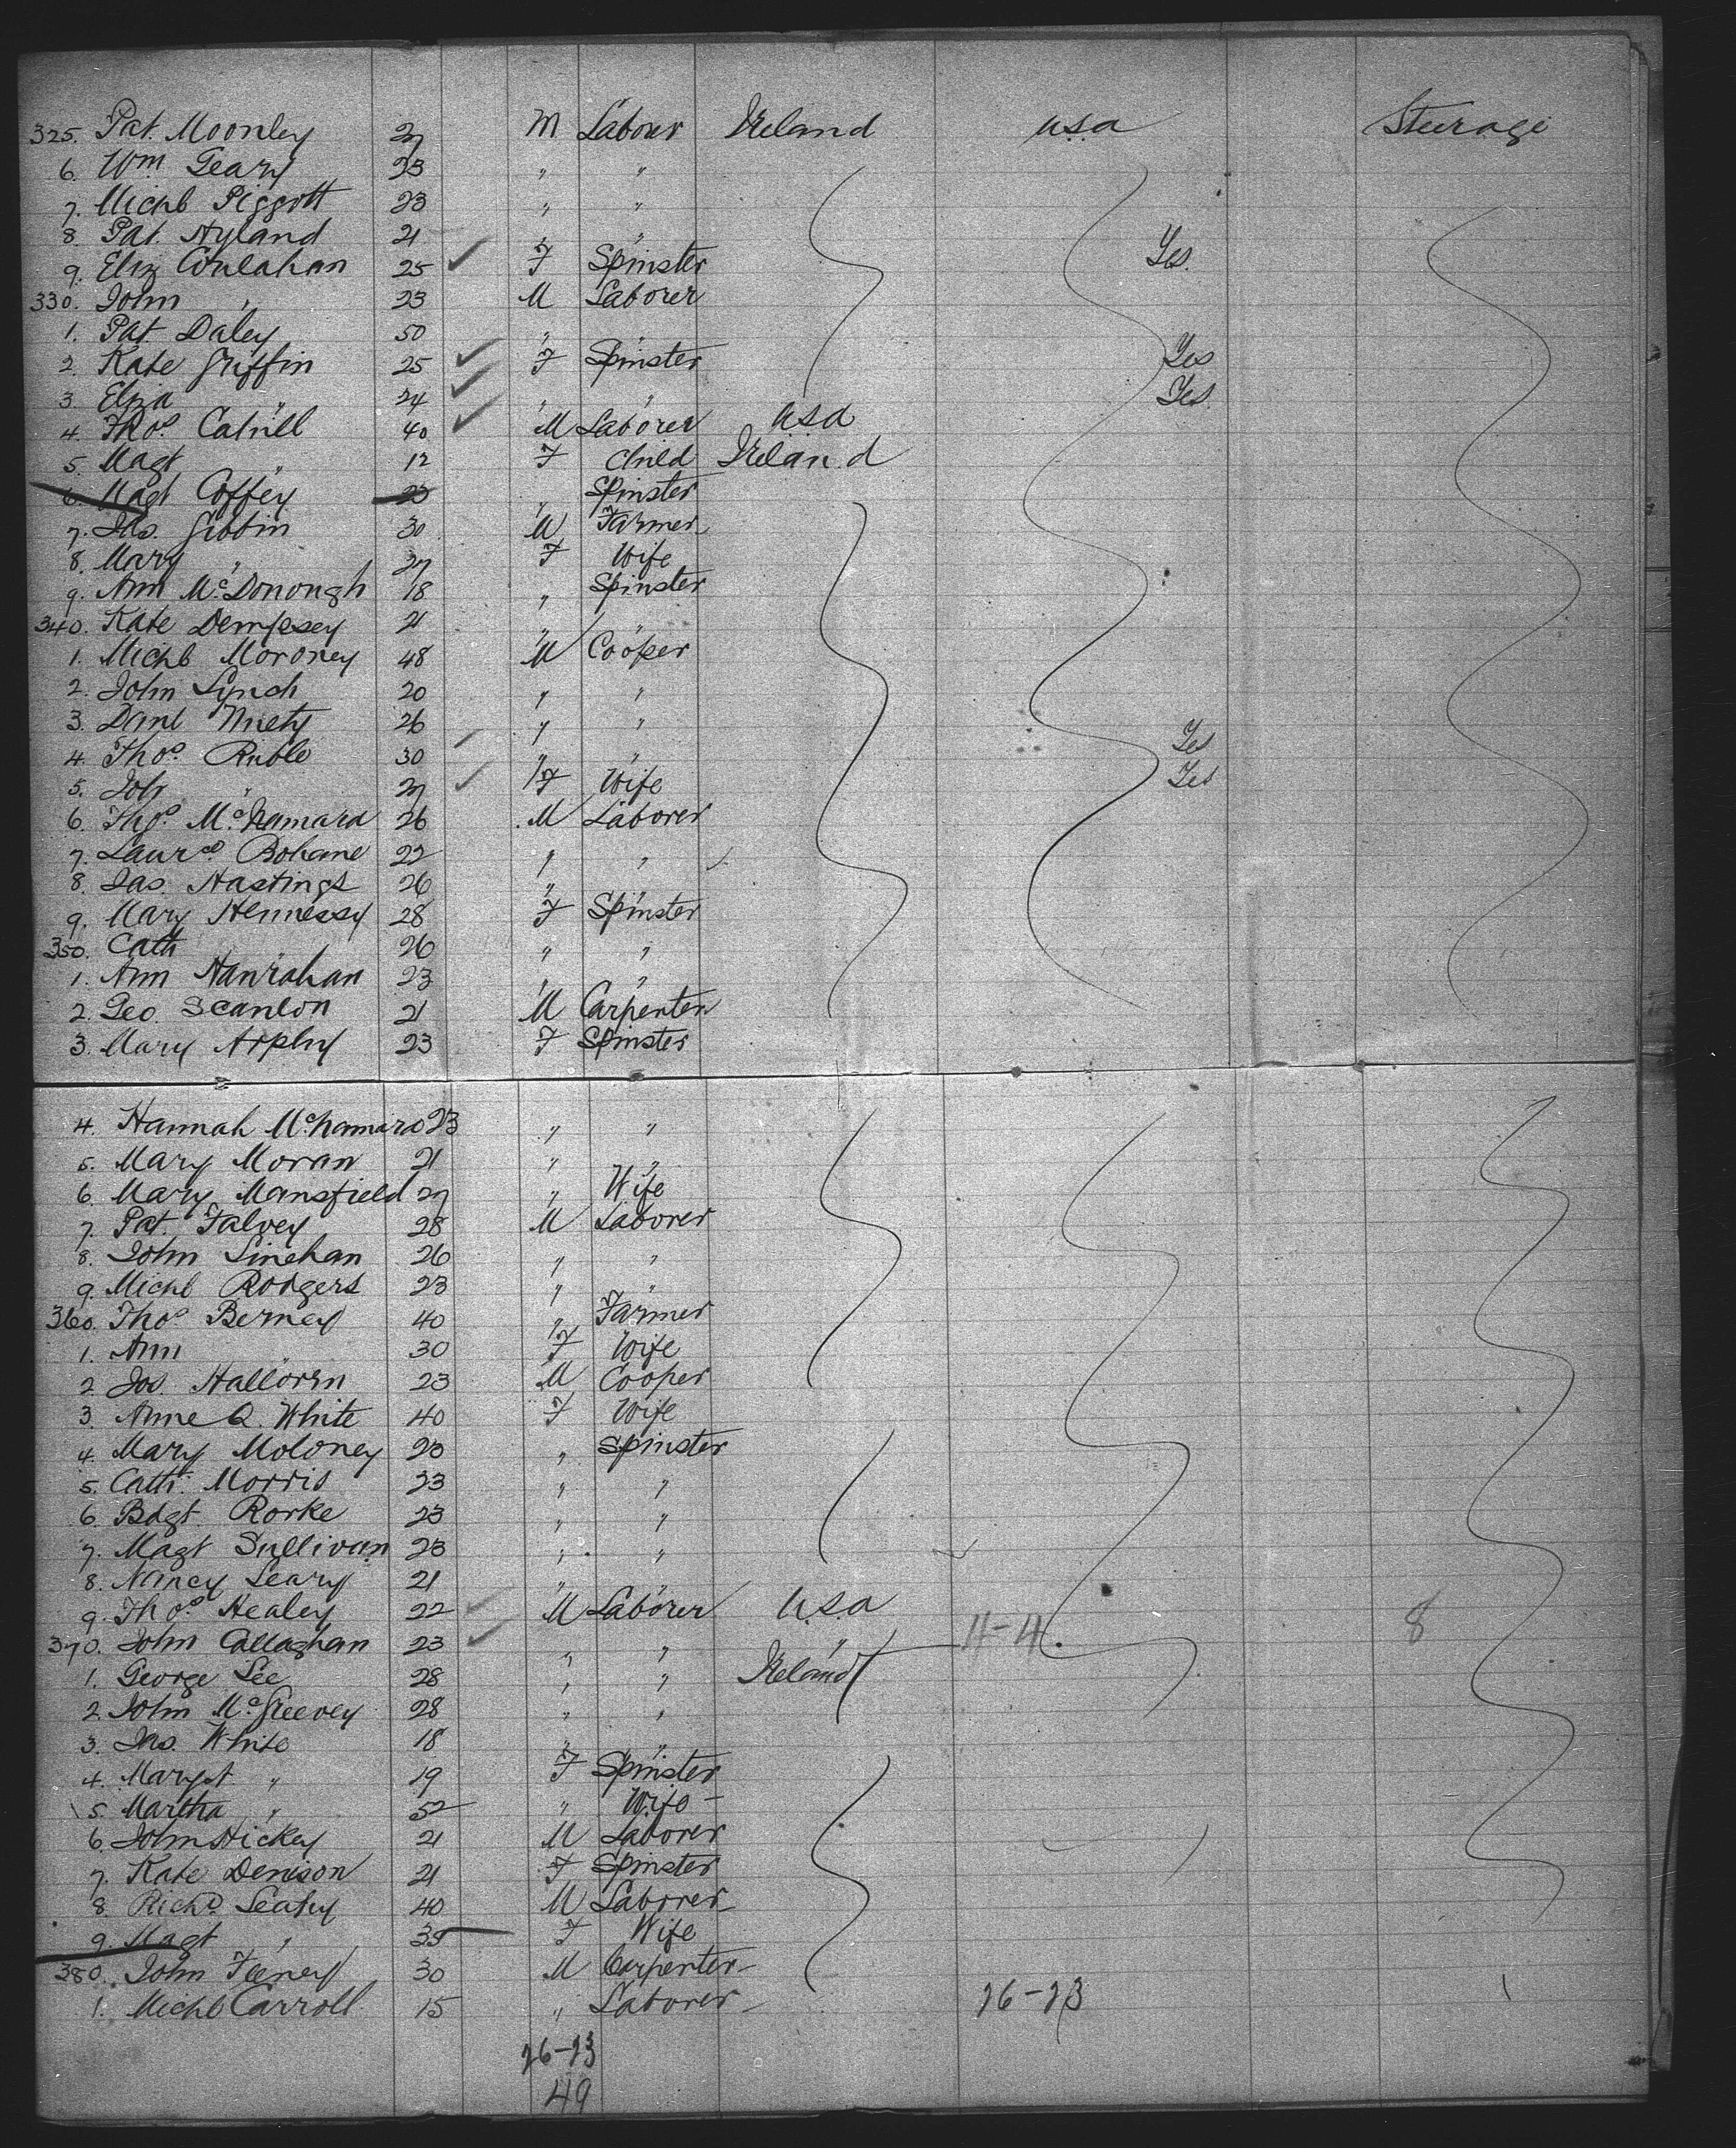 325. Pat. Moonley 27 M Labour Ireland USA Steerage
6. Wm Geary 23 " "
7. Michl Piggott 23 " "
8. Pat. Hyland 21 " "
9. Eliz Conlahan 25 ✓ F Spinster Yes.
330. John " 23 M Laborer
1. Pat Daley 50 " "
2. Kate Griffin 25 ✓ F Spinster Yes
3. Eliza " 24 ✓ " " Yes
4. Thos. Cahill 40 ✓ M Laborer USA
5. Magt " 12 F Child Ireland
6. Magt Coffey 23 " Spinster
7. Jas. Gibbin 30 M Farmer
8. Mary " 27 F Wife
9. Ann McDonough 18 " Spinster
340. Kate Dempsey 21 " "
1. Michl Moroney 48 M Cooper
2. John Lynch 20 " "
3. Danl 26 " "
4. Thos. Ruble 30 ✓ " " Yes
5. " 27 ✓ F Wife Yes
6. Thos. McNamara 26 M Laborer
7. Laurce Bohane 22 " "
8. Jas. Hastings 26 " "
9. Mary Hennessy 28 F Spinster
350. Cath " 26 " "
1. Ann Hanrahan 23 " "
2. Geo. Scanlon 21 M Carpenter
3. Mary Arphy 23 F Spinster
4. Hannah McNamara 23 " "
5. Mary Moran 21 " "
6. Mary Mansfield 27 " Wife
7. Pat. Falvey 28 M Laborer
8. John Linehan 26 " "
9. Michl Rodgers 23 " "
360. Thos Berney 40 " Farmer
1. Ann " 30 F Wife
2. Jos Hallorin 23 M Cooper
3. Anne Q. White 40 F Wife
4. Mary Moloney 20 " Spinster
5. Cath. Morris 23 " "
6. Bdgt. Rorke 23 " "
7. Magt Sullivan 23 " "
8. Nancy Leary 21 " "
9. Thos. Healey 22 ✓ M Laborer U.S.A
370. John Callaghan 23 ✓ " " " 11-4. 8
1. George Lee 28 " " Ireland
2. John McGreevey 28 " "
3. Jas. White 18 " "
4. Margt " 19 F Spinster
5. Martha " 52 " Wife -
6. John Hickey 21 M Laborer
7. Kate Denison 21 F Spinster
8. Richd. Leahy 40 M Laborer
9. Magt " 35 F Wife
380. John Feeney 30 M Carpenter-
1. Michl Carroll 15 " Laborer- 26-23
26-23
49